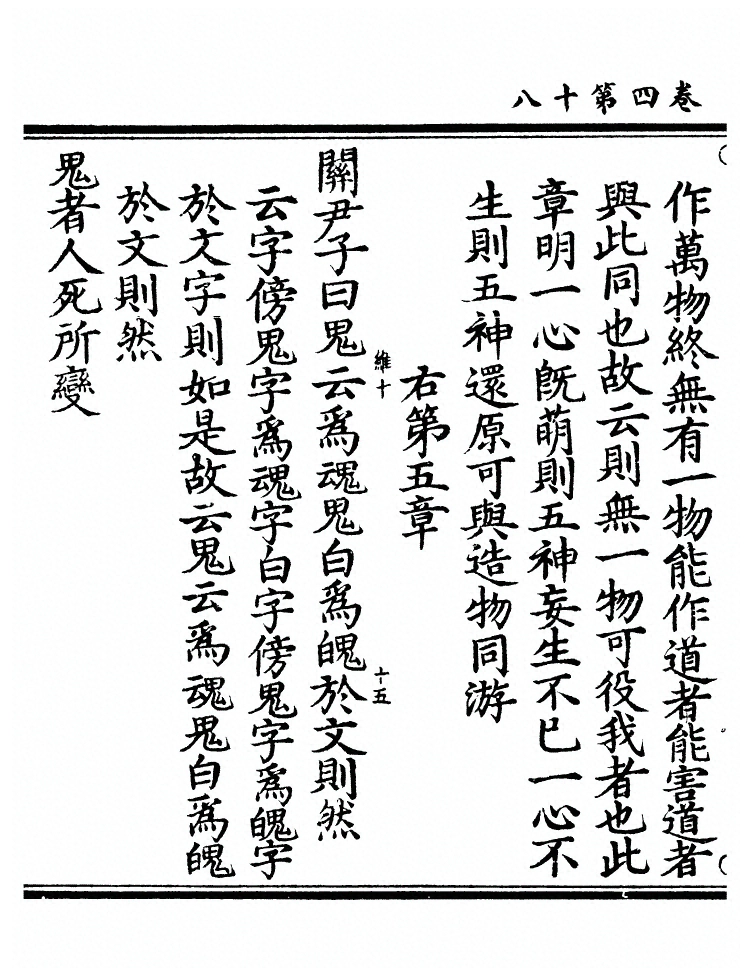 卷四第十八
作萬物終無有一物能作道者能害道者
與此同也故云則無一物可役我者也此
章明一心旣萌則五神妄生不已一心不
生則五神還原可與造物同游
右第五章
維十
十五
關尹子曰鬼云爲魂鬼白爲魄於文則然
云字傍鬼字爲魂字白字傍鬼字爲魄字
於文字則如是故云鬼云爲魂鬼白爲魄
於文則然
鬼者人死所變